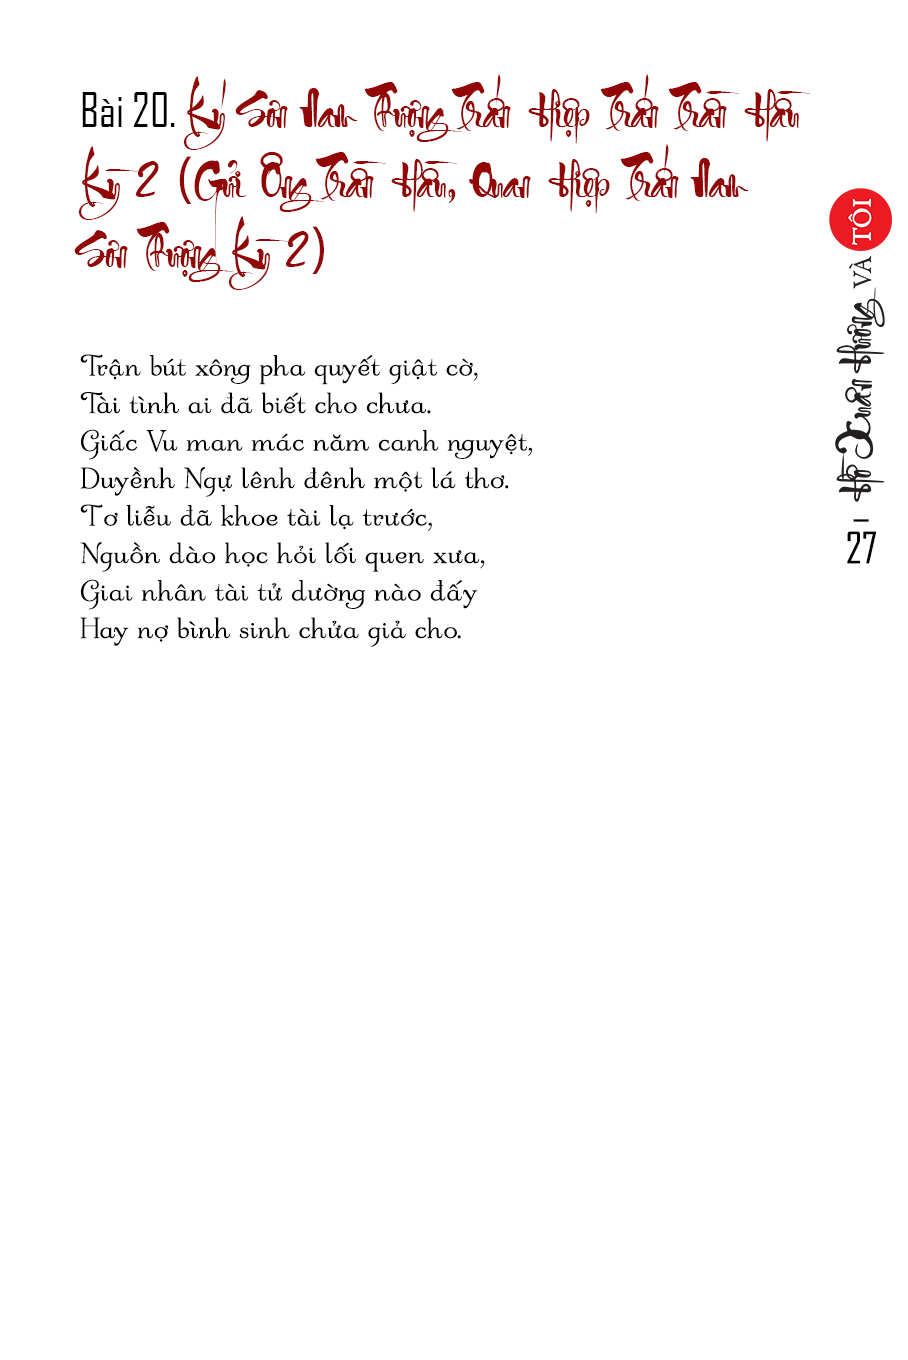 Bài 20. Ký Sơn Nam Thượng Trấn Hiệp Trấn Trần Hầu
Kỳ 2 (Gửi Ông Trần Hầu, Quan Hiệp Trấn Nam
Sơn Thượng Kỳ 2)
Trận bút xông pha quyết giật cờ,
Tài tình ai đã biết cho chưa.
Giấc Vu man mác năm canh nguyệt,
Duyềnh Ngự lênh đênh một lá thơ.
Tơ liễu đã khoe tài lạ trước,
Nguồn dào học hỏi lối quen xưa,
Giai nhân tài tử dường nào đấy
Hay nợ bình sinh chửa giả cho.
Hồ Xuân Hương VÀ TÔI
27